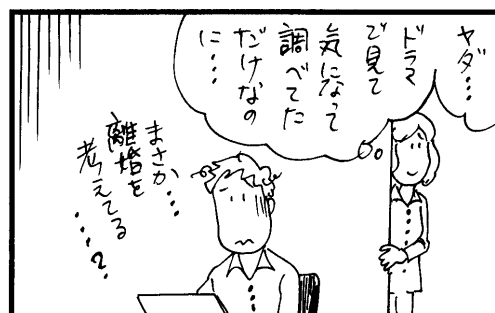 ヤダ…
ドラマ
で見て
気になって
調べてた
だけなの
に…
まさか…
離婚を
考えてる
…？